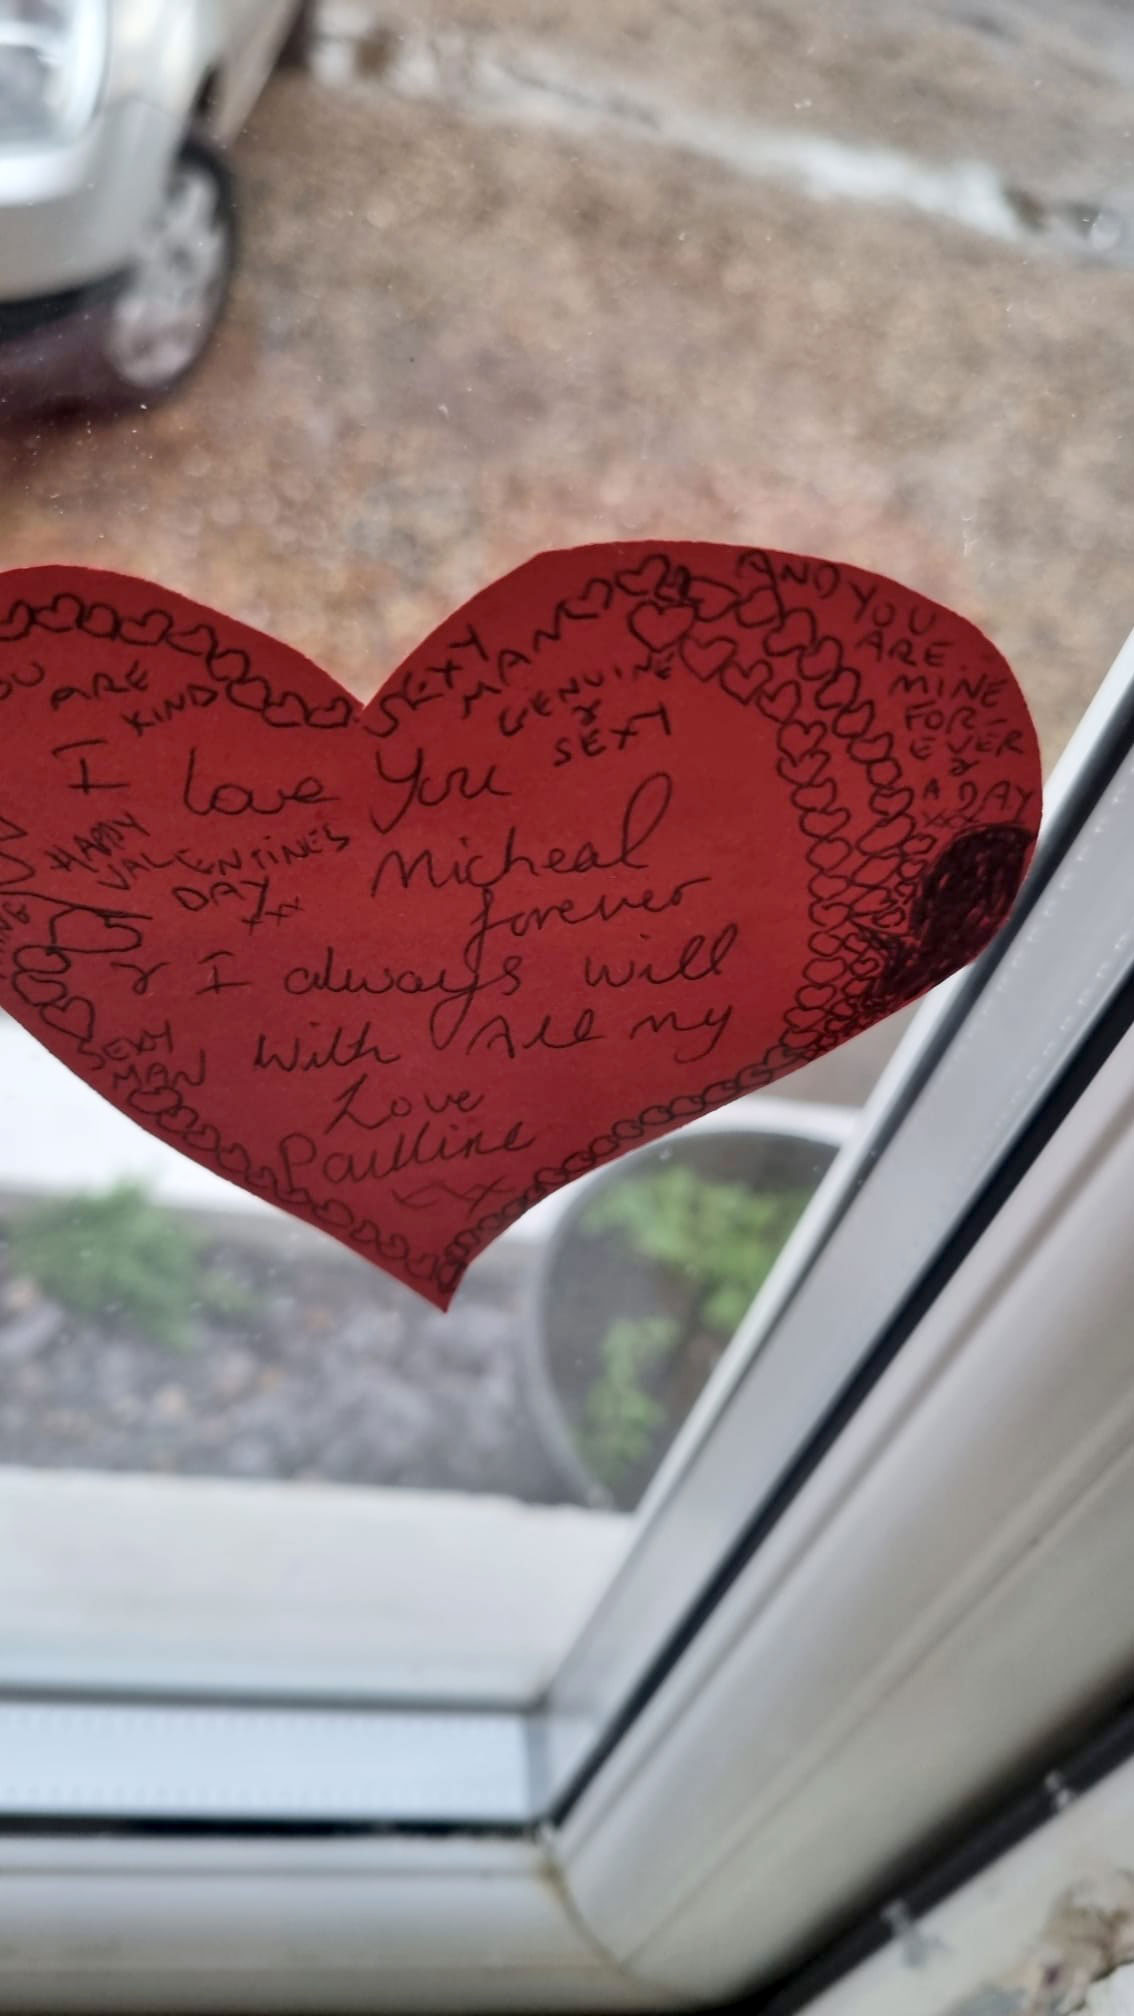 ARE
KIND
SEXY
MAN
GENUINE
&
SEXY
AND YOU
ARE
MINE
FOR-
EVER
&
A DAY
xx
I love you
HAPPY
VALENTINES
DAY
xx
Micheal
forever
& I always will
With All my
Love
Paulline
xx
SEXY
MAN